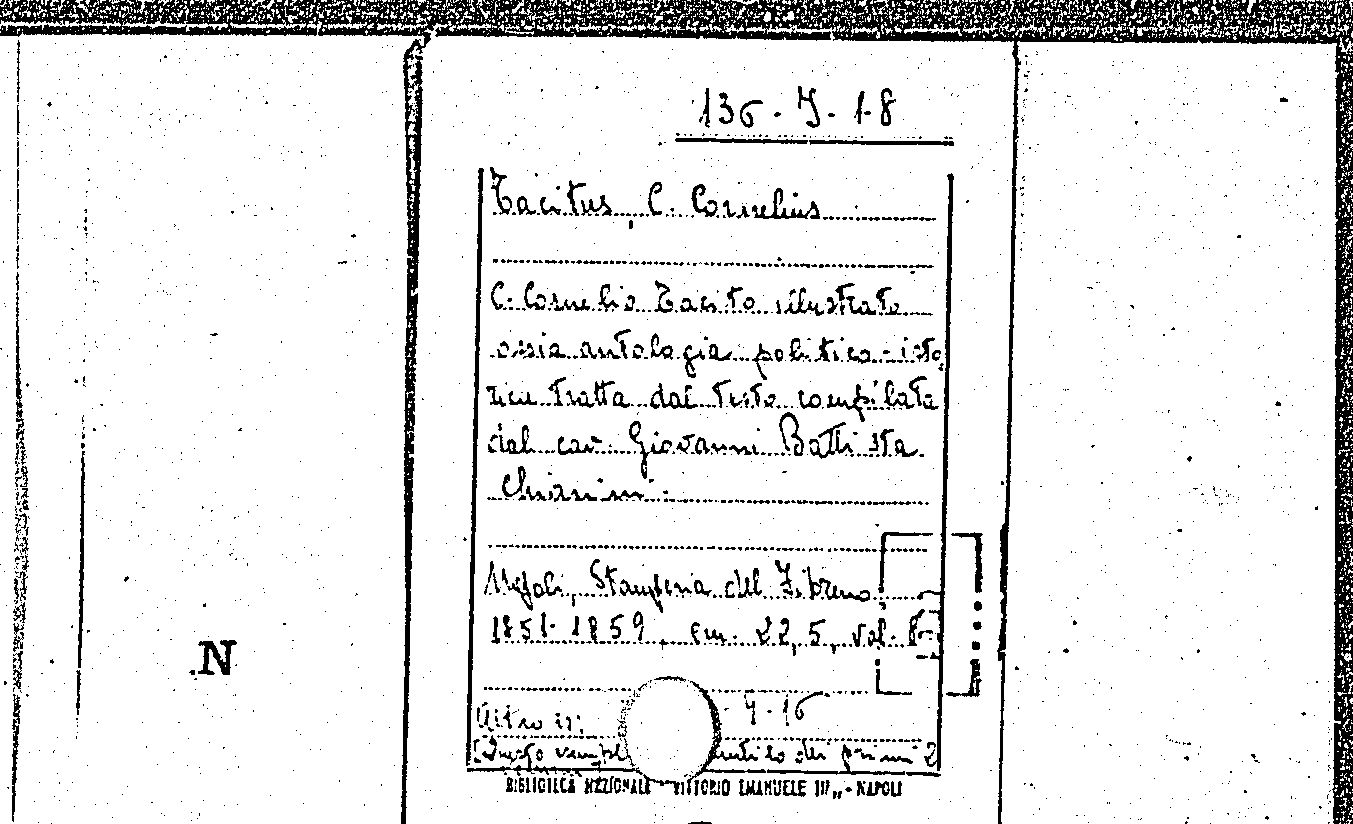 136. J. 1-8
Tacitus, C. Cornelius
C. Cornelio Tacito illustrato
ossia antologia politico-isto
rica tratta dal testo compilata
dal cav. Giovanni Battista
Chiarini.
Napoli, Stamperia del Fibreno,
1851-1859, cm. 22,5, vol. 8
Altro in: . J. 16
dei primi 2
BIBLIOTECA NAZIONALE "VITTORIO EMANUELE III" - NAPOLI
N